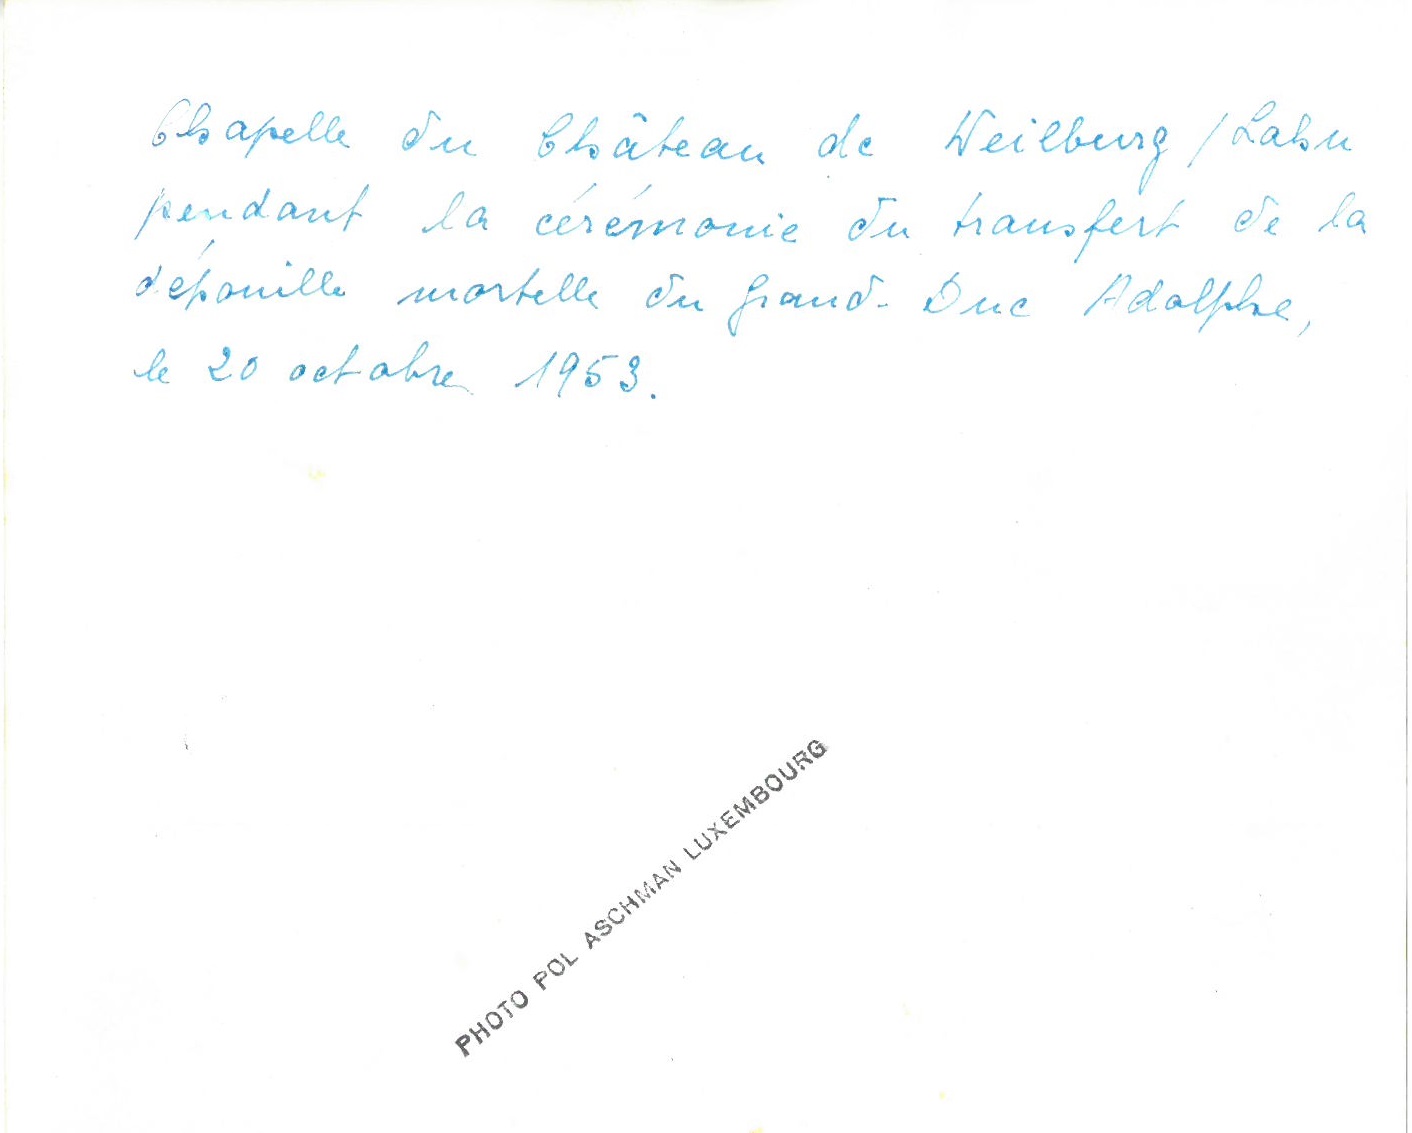 Chapelle du Château de Weilburg / Lahn
pendant la cérémonie du transfert de la
dépouille mortelle du Grand-Duc Adolphe,
le 20 octobre 1953.
PHOTO POL ASCHMAN LUXEMBOURG